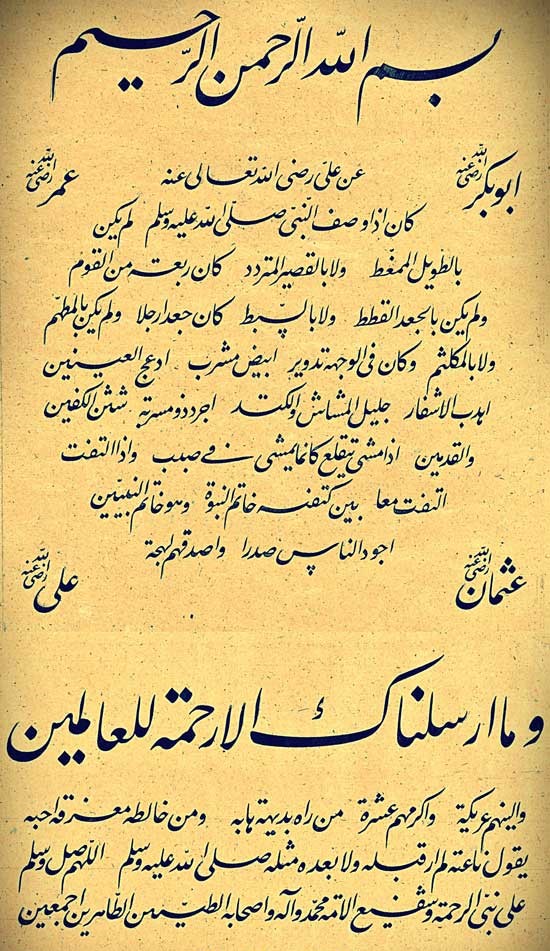 بسم الله الرحمن الرحيم
ابوبكر رضي الله عنه
عمر رضي الله عنه
عن علي رضي الله تعالى عنه
كان اذا وصف النبي صلى الله عليه وسلم لم يكن
بالطويل الممغط ولا بالقصير المتردد كان ربعة من القوم
ولم يكن بالجعد القطط ولا بالسبط كان جعدا رجلا ولم يكن بالمطهم
ولا بالمكلثم وكان في الوجهه تدوير ابيض مشرب ادعج العينين
اهدب الاشفار جليل المشاش والكتد اجرد ذو مسربة شثن الكفين
والقدمين اذا مشى يتقلع كانما يمشي في صبب واذا التفت
التفت معا بين كتفيه خاتم النبوة وهو خاتم النبيين
اجود الناس صدرا واصدقهم لهجة
عثمان رضي الله عنه
علي رضي الله عنه
وما ارسلناك الا رحمة للعالمين
والينهم عريكة واكرمهم عشرة من راه بديهة هابه ومن خالطه معرفة احبه
يقول ناعته لم ار قبله ولا بعده مثله صلى الله عليه وسلم اللهم صل وسلم
على نبي الرحمة وشفيع الامه محمد وآله واصحابه الطيبين الطاهرين اجمعين